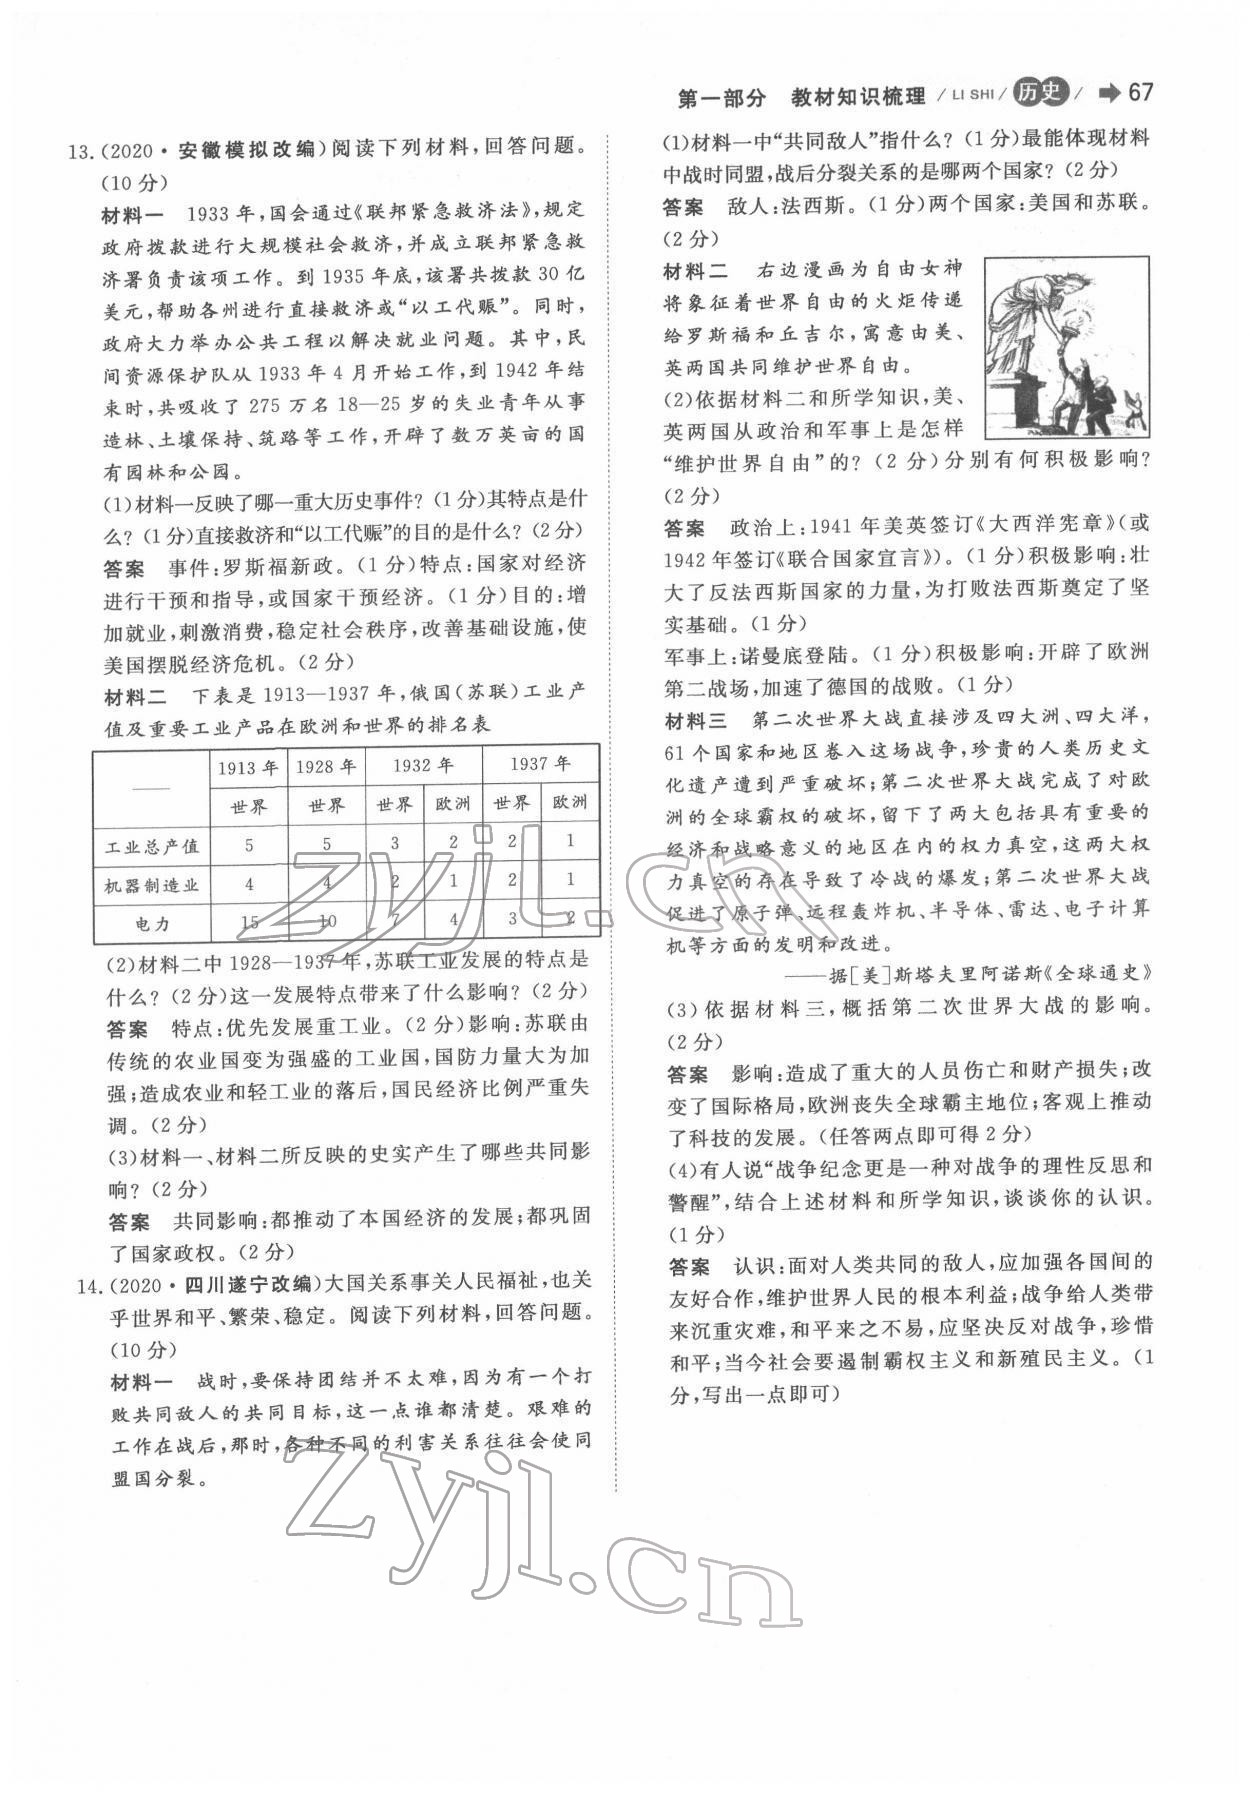 第一部分 教材知识梳理 / LI SHI / 历史 / 67
13.(2020·安徽模拟改编)阅读下列材料,回答问题。
(10分)
材料一 1933年,国会通过《联邦紧急救济法》,规定
政府拨款进行大规模社会救济,并成立联邦紧急救
济署负责该项工作。到1935年底,该署共拨款30亿
美元,帮助各州进行直接救济或“以工代赈”。同时,
政府大力举办公共工程以解决就业问题。其中,民
间资源保护队从1933年4月开始工作,到1942年结
束时,共吸收了275万名18—25岁的失业青年从事
造林、土壤保持、筑路等工作,开辟了数万英亩的国
有园林和公园。
(1)材料一反映了哪一重大历史事件?(1分)其特点是什
么?(1分)直接救济和“以工代赈”的目的是什么?(2分)
答案 事件:罗斯福新政。(1分)特点:国家对经济
进行干预和指导,或国家干预经济。(1分)目的:增
加就业,刺激消费,稳定社会秩序,改善基础设施,使
美国摆脱经济危机。(2分)
材料二 下表是1913—1937年,俄国(苏联)工业产
值及重要工业产品在欧洲和世界的排名表
—— 1913年 1928年 1932年 1937年
世界 世界 世界 欧洲 世界 欧洲
工业总产值 5 5 3 2 2 1
机器制造业 4 4 2 1 2 1
电力 15 10 7 4 3 2
(2)材料二中1928—1937年,苏联工业发展的特点是
什么?(2分)这一发展特点带来了什么影响?(2分)
答案 特点:优先发展重工业。(2分)影响:苏联由
传统的农业国变为强盛的工业国,国防力量大为加
强;造成农业和轻工业的落后,国民经济比例严重失
调。(2分)
(3)材料一、材料二所反映的史实产生了哪些共同影
响?(2分)
答案 共同影响:都推动了本国经济的发展;都巩固
了国家政权。(2分)
14.(2020·四川遂宁改编)大国关系事关人民福祉,也关
乎世界和平、繁荣、稳定。阅读下列材料,回答问题。
(10分)
材料一 战时,要保持团结并不太难,因为有一个打
败共同敌人的共同目标,这一点谁都清楚。艰难的
工作在战后,那时,各种不同的利害关系往往会使同
盟国分裂。
(1)材料一中“共同敌人”指什么?(1分)最能体现材料
中战时同盟,战后分裂关系的是哪两个国家?(2分)
答案 敌人:法西斯。(1分)两个国家:美国和苏联。
(2分)
材料二 右边漫画为自由女神
将象征着世界自由的火炬传递
给罗斯福和丘吉尔,寓意由美、
英两国共同维护世界自由。
(2)依据材料二和所学知识,美、
英两国从政治和军事上是怎样
“维护世界自由”的?(2分)分别有何积极影响?
(2分)
答案 政治上:1941年美英签订《大西洋宪章》(或
1942年签订《联合国家宣言》)。(1分)积极影响:壮
大了反法西斯国家的力量,为打败法西斯奠定了坚
实基础。(1分)
军事上:诺曼底登陆。(1分)积极影响:开辟了欧洲
第二战场,加速了德国的战败。(1分)
材料三 第二次世界大战直接涉及四大洲、四大洋,
61个国家和地区卷入这场战争,珍贵的人类历史文
化遗产遭到严重破坏;第二次世界大战完成了对欧
洲的全球霸权的破坏,留下了两大包括具有重要的
经济和战略意义的地区在内的权力真空,这两大权
力真空的存在导致了冷战的爆发;第二次世界大战
促进了原子弹、远程轰炸机、半导体、雷达、电子计算
机等方面的发明和改进。
——据[美]斯塔夫里阿诺斯《全球通史》
(3)依据材料三,概括第二次世界大战的影响。
(2分)
答案 影响:造成了重大的人员伤亡和财产损失;改
变了国际格局,欧洲丧失全球霸主地位;客观上推动
了科技的发展。(任答两点即可得2分)
(4)有人说“战争纪念更是一种对战争的理性反思和
警醒”,结合上述材料和所学知识,谈谈你的认识。
(1分)
答案 认识:面对人类共同的敌人,应加强各国间的
友好合作,维护世界人民的根本利益;战争给人类带
来沉重灾难,和平来之不易,应坚决反对战争,珍惜
和平;当今社会要遏制霸权主义和新殖民主义。(1
分,写出一点即可)
zyjl.cn
zyjl.cn